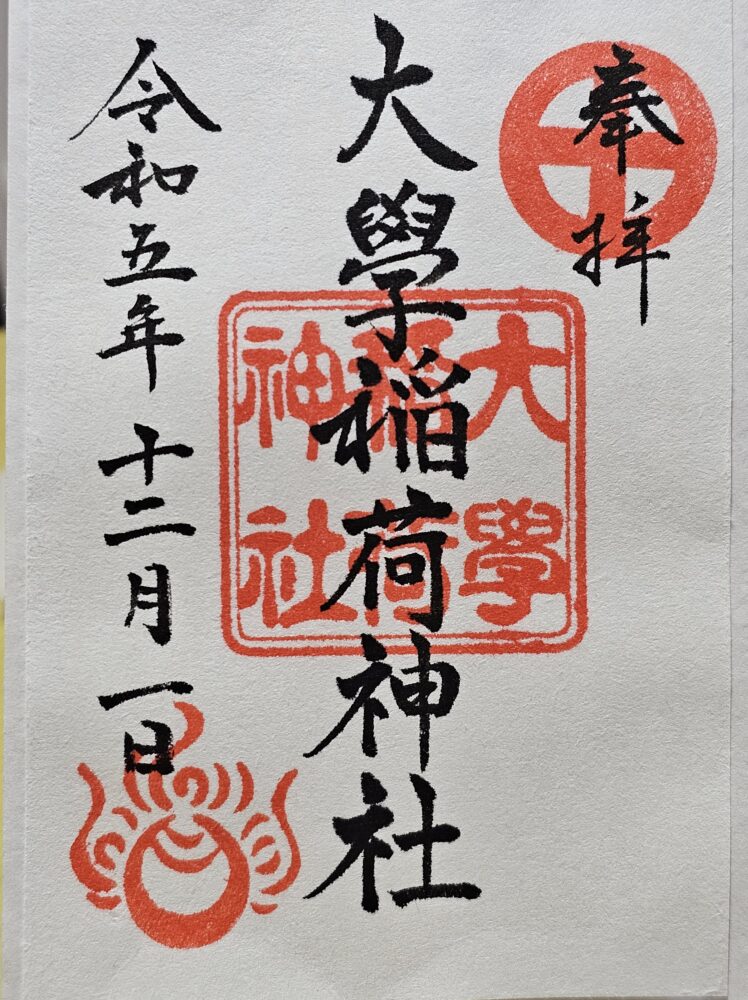 奉拝
大學稲荷神社
大學
稲荷
神社
令和五年十二月一日